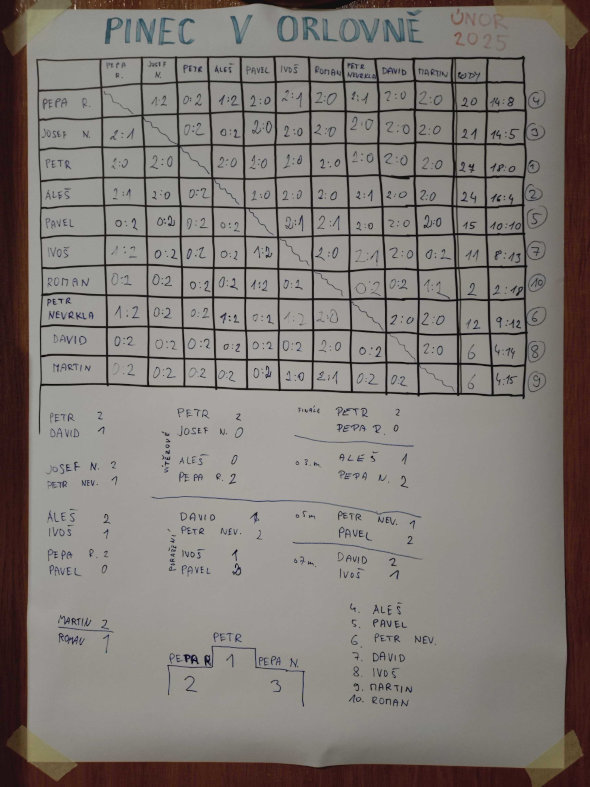 PINEC V ORLOVNĚ ÚNOR 2025
PEPA R. JOSEF N. PETR ALEŠ PAVEL IVOŠ ROMAN PETR NEVRKLA DAVID MARTIN BODY
PEPA R. 1:2 0:2 1:2 2:0 2:1 2:0 2:1 2:0 2:0 20 14:8 4
JOSEF N. 2:1 0:2 0:2 2:0 2:0 2:0 2:0 2:0 2:0 21 14:5 3
PETR 2:0 2:0 2:0 2:0 2:0 2:0 2:0 2:0 2:0 27 18:0 1
ALEŠ 2:1 2:0 0:2 2:0 2:0 2:0 2:1 2:0 2:0 24 16:4 2
PAVEL 0:2 0:2 0:2 0:2 2:1 2:1 2:0 2:0 2:0 15 10:10 5
IVOŠ 1:2 0:2 0:2 0:2 1:2 2:0 2:1 2:0 0:2 11 8:13 7
ROMAN 0:2 0:2 0:2 0:2 1:2 0:2 0:2 0:2 1:2 2 2:18 10
PETR NEVRKLA 1:2 0:2 0:2 1:2 0:2 1:2 2:0 2:0 2:0 12 9:12 6
DAVID 0:2 0:2 0:2 0:2 0:2 0:2 2:0 0:2 2:0 6 4:14 8
MARTIN 0:2 0:2 0:2 0:2 0:2 2:0 2:1 0:2 0:2 6 4:15 9
PETR 2
DAVID 1
JOSEF N. 2
PETR NEV. 1
ALEŠ 2
IVOŠ 1
PEPA R. 2
PAVEL 0
VÍTĚZOVÉ
PETR 2
JOSEF N. 0
ALEŠ 0
PEPA R. 2
PORAŽENÍ
DAVID 1
PETR NEV. 2
IVOŠ 1
PAVEL 2
FINÁLE PETR 2
PEPA R. 0
o 3.m. ALEŠ 1
PEPA N. 2
o 5m PETR NEV. 1
PAVEL 2
o 7m. DAVID 2
IVOŠ 1
MARTIN 2
ROMAN 1
PETR
PEPA R 1 PEPA N.
2 3
4. ALEŠ
5. PAVEL
6. PETR NEV.
7. DAVID
8. IVOŠ
9. MARTIN
10. ROMAN